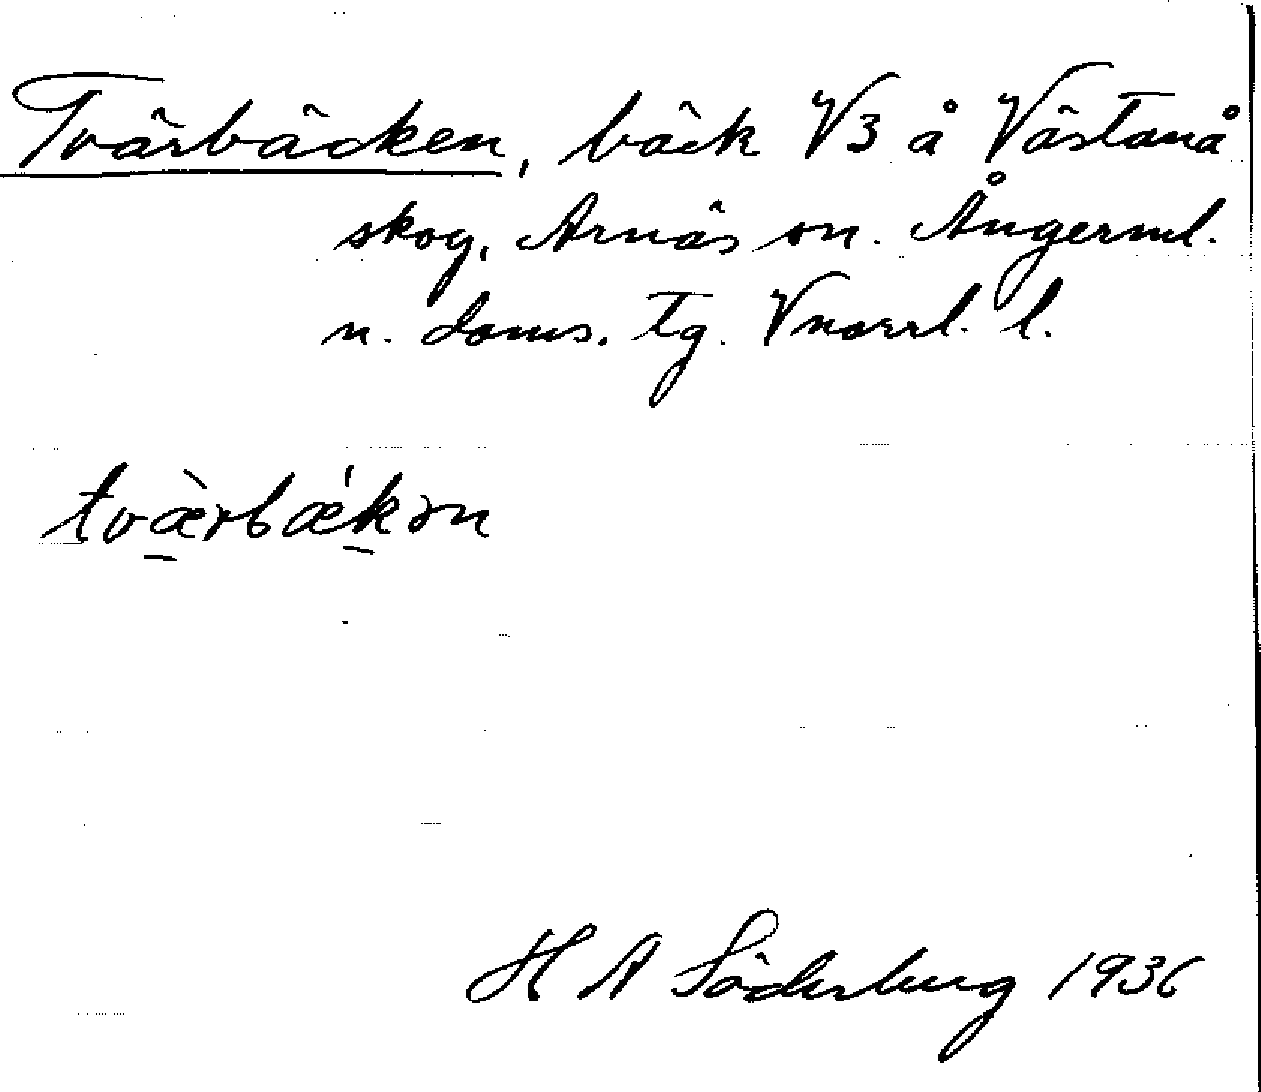 Tvärbäcken, bäck V3 å Västanå
skog, Arnäs sn. Ångerml.
n. doms. tg. Vnorrl. l.
tvæ̀rbǽkən
H A Söderberg 1936